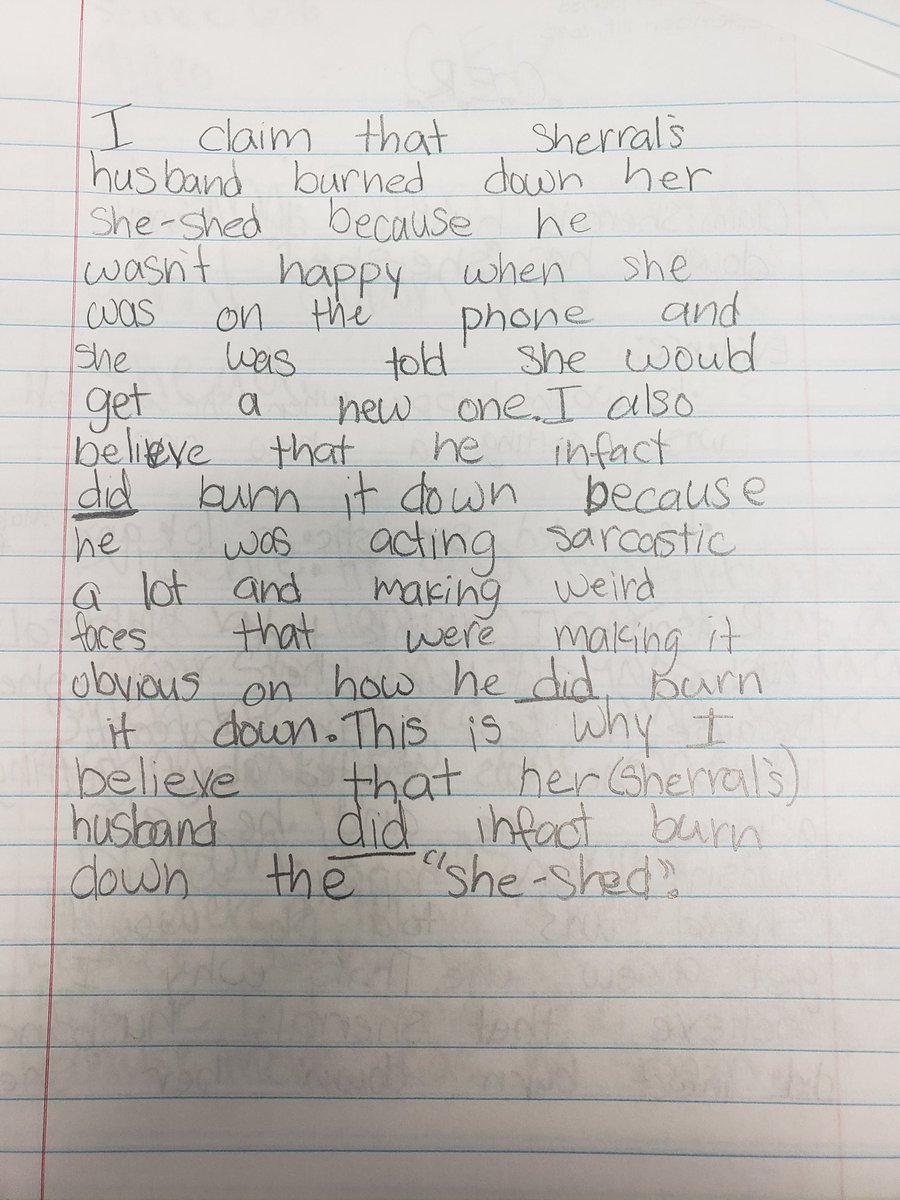 I claim that Sherral's
husband burned down her
she-shed because he
wasn't happy when she
was on the phone and
she was told she would
get a new one. I also
believe that he infact
did burn it down because
he was acting sarcastic
a lot and making weird
faces that were making it
obvious on how he did burn
it down. This is why I
believe that her (Sherral's)
husband did infact burn
down the "she-shed".